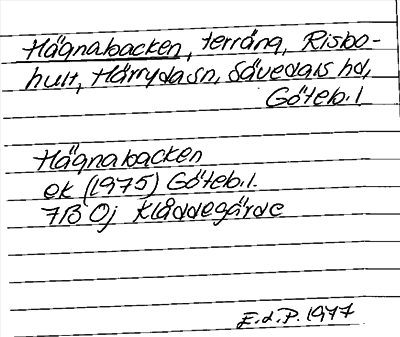 Hägnabacken, terräng, Risbo-
hult, Härryda sn, Sävedals hd,
Göteb. l
Hägnabacken
ek (1975) Göteb. l.
7B 0j Klåddegärde
E.d.P. 1977